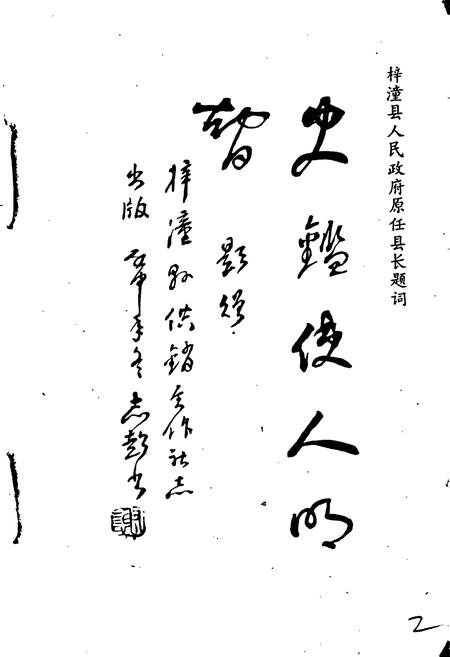 梓潼县人民政府原任县长题词
史鑑使人明
智 题
梓潼县供销合作社志
出版 年冬志彭书
2